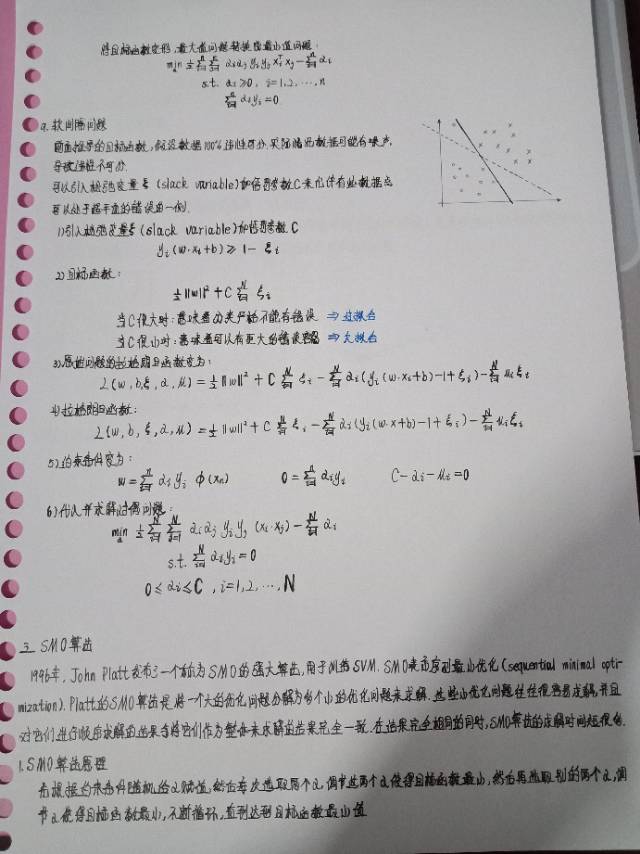 将目标函数变形,最大值问题转换成最小值问题:
min_a ½ Σ_{i=1}^{n} Σ_{j=1}^{n} α_i α_j y_i y_j x_i^T x_j − Σ_{i=1}^{n} α_i
s.t. α_i ≥ 0, i=1,2,…,n
Σ_{i=1}^{n} α_i y_i = 0
软间隔问题
前面推导的目标函数,假设数据100%线性可分.实际情况数据可能有噪声,
导致线性不可分.
可以引入松弛变量ξ(slack variable)和惩罚参数C来允许有些数据点
可以处于超平面的错误的一侧.
1)引入松弛变量ξ(slack variable)和惩罚参数C
y_i(w·x_i+b) ≥ 1−ξ_i
2)目标函数:
½||w||² + C Σ_{i=1}^{N} ξ_i
当C很大时:意味着分类严格不能有错误 ⇒ 过拟合
当C很小时:意味着可以有更大的错误容忍 ⇒ 欠拟合
3)原始问题的拉格朗日函数变为:
L(w,b,ξ,α,μ)=½||w||² + C Σ_{i=1}^{N} ξ_i − Σ_{i=1}^{N} α_i(y_i(w·x_i+b)−1+ξ_i)−Σ_{i=1}^{N} μ_i ξ_i
4)拉格朗日函数:
L(w,b,ξ,α,μ)=½||w||² + C Σ_{i=1}^{N} ξ_i − Σ_{i=1}^{N} α_i(y_i(w·x+b)−1+ξ_i)−Σ_{i=1}^{N} μ_i ξ_i
5)约束条件变为:
w=Σ_{i=1}^{n} α_i y_i φ(x_n) 0=Σ_{i=1}^{n} α_i y_i C−α_i−μ_i=0
6)代入并求解对偶问题:
min_a ½ Σ_{i=1}^{N} Σ_{j=1}^{N} α_i α_j y_i y_j (x_i·x_j) − Σ_{i=1}^{N} α_i
s.t. Σ_{i=1}^{N} α_i y_i = 0
0 ≤ α_i ≤ C , i=1,2,…,N
三 SMO算法
1996年, John Platt发布了一个称为SMO的强大算法,用于训练SVM. SMO表示序列最小优化(sequential minimal opti-
mization). Platt的SMO算法是将一个大的优化问题分解为多个小的优化问题来求解.这些小优化问题往往很容易求解,并且
对它们进行顺序求解的结果与将它们作为整体来求解的结果完全一致.在结果完全相同的同时,SMO算法的求解时间短很多.
1.SMO算法原理
先根据约束条件随机给α赋值,然后每次选取两个α,调节这两个α使得目标函数最小,然后再选取别的两个α,调
节α使得目标函数最小,不断循环,直到达到目标函数最小值